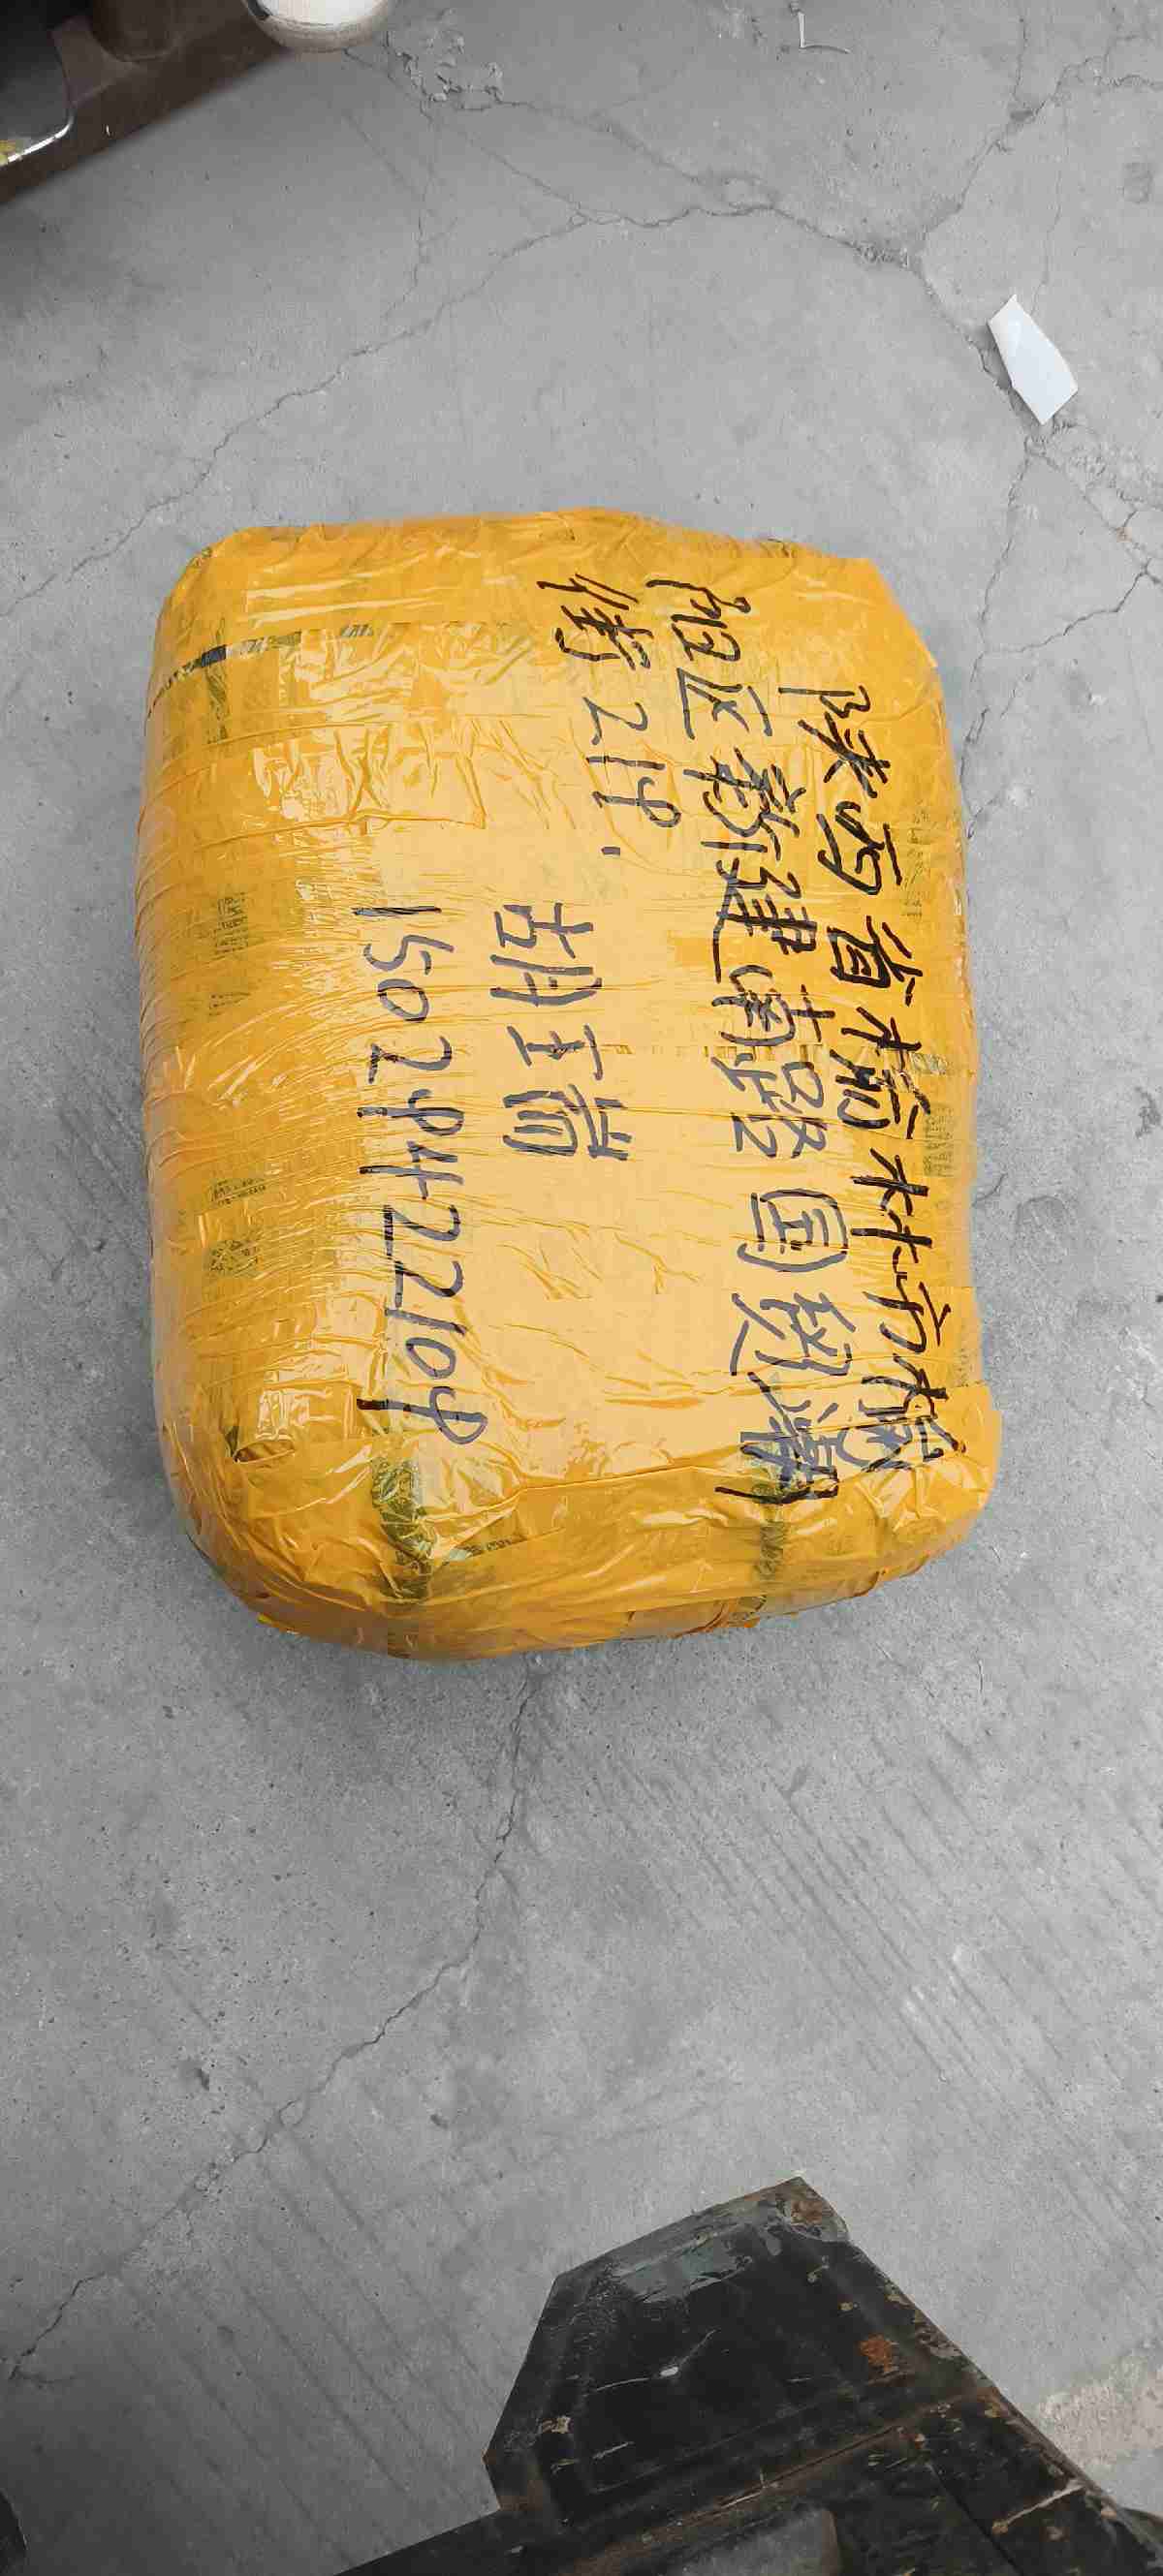 陕西省榆林市榆
阳区新建南路国际璟
街219.
胡玉霄
15029422109